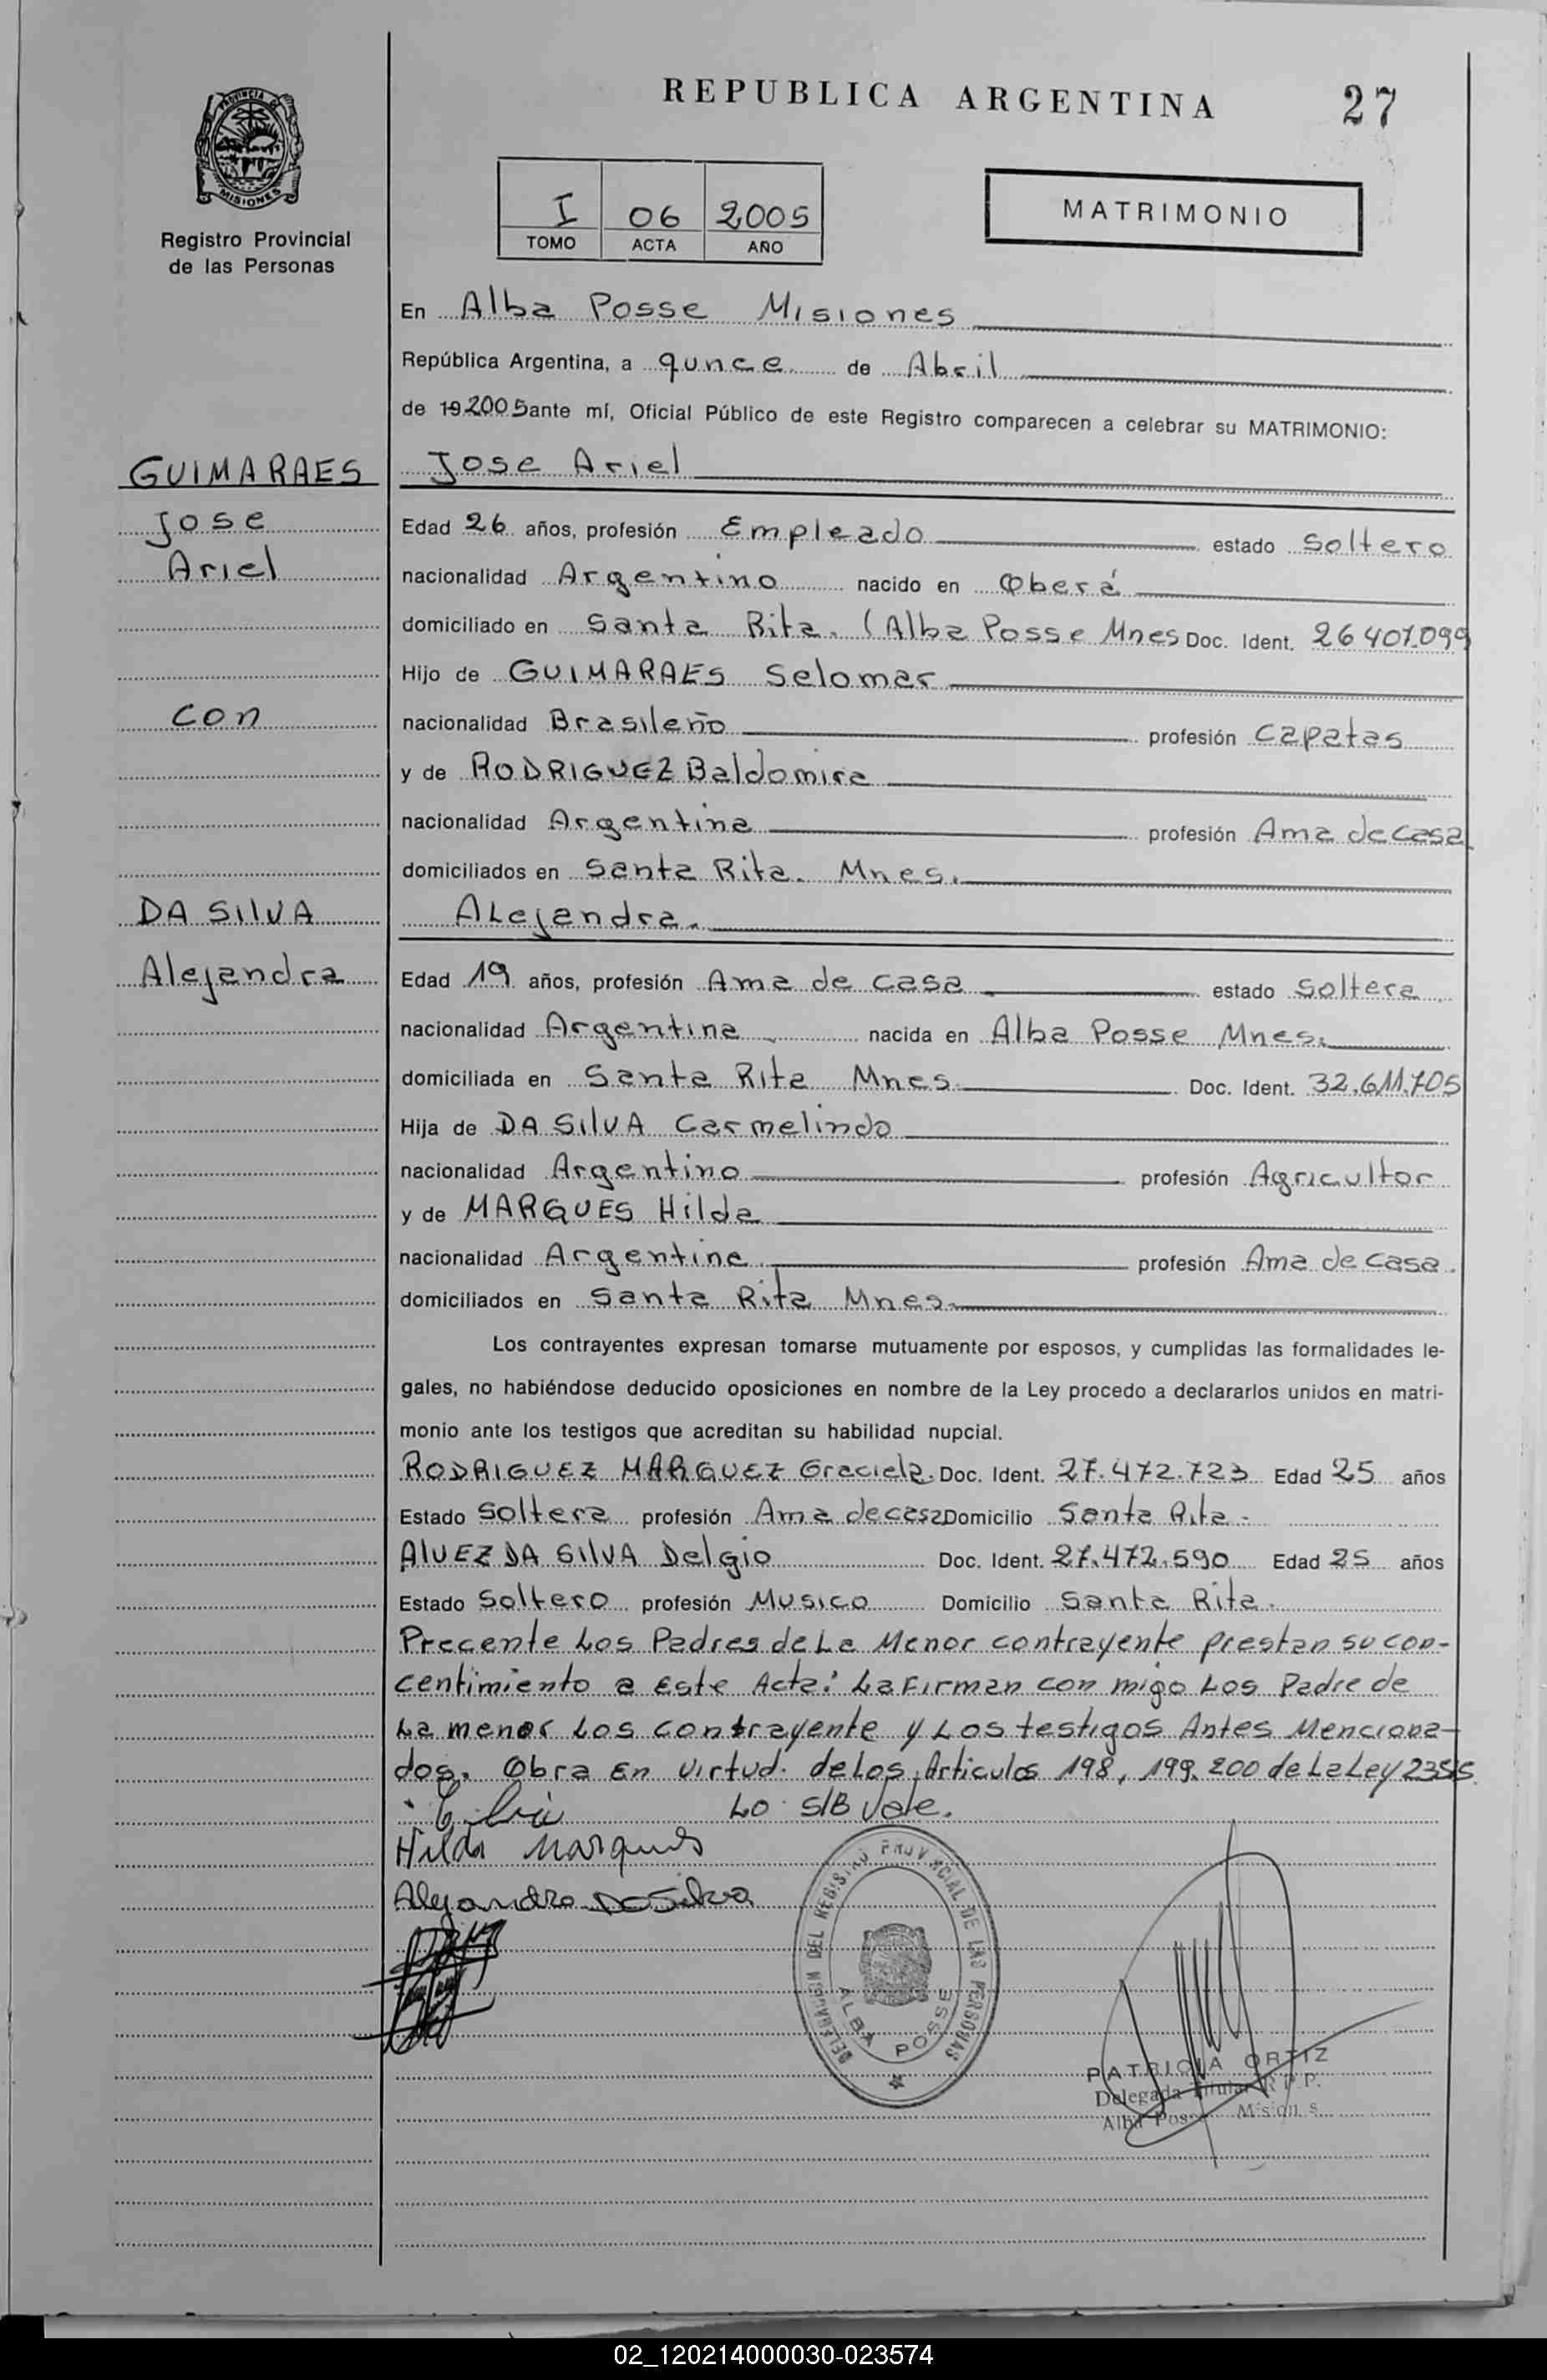 REPUBLICA ARGENTINA
27
PROVINCIA DE
MISIONES
Registro Provincial
de las Personas
I 06 2005
TOMO ACTA AÑO
MATRIMONIO
En Alba Posse Misiones
República Argentina, a qunce de Abril
de 19 2005 ante mí, Oficial Público de este Registro comparecen a celebrar su MATRIMONIO:
GUIMARAES Jose Ariel
Jose
Ariel
Edad 26 años, profesión Empleado estado Soltero
nacionalidad Argentino nacido en Oberá
domiciliado en Santa Rita. (Alba Posse Mnes Doc. Ident. 26401.099
Hijo de GUIMARAES Selomar
con
nacionalidad Brasileño profesión Capatas
y de RODRIGUEZ Baldomira
nacionalidad Argentina profesión Ama de casa
domiciliados en Santa Rita. Mnes.
DA SIlVA Alejandra.
Alejandra
Edad 19 años, profesión Ama de casa estado Soltera
nacionalidad Argentina nacida en Alba Posse Mnes.
domiciliada en Santa Rita Mnes. Doc. Ident. 32.611.705
Hija de DA SIlVA Carmelindo
nacionalidad Argentino profesión Agricultor
y de MARQUES Hilda
nacionalidad Argentina profesión Ama de casa.
domiciliados en Santa Rita Mnes.
Los contrayentes expresan tomarse mutuamente por esposos, y cumplidas las formalidades le-
gales, no habiéndose deducido oposiciones en nombre de la Ley procedo a declararlos unidos en matri-
monio ante los testigos que acreditan su habilidad nupcial.
RODRIGUEZ MARQUEZ Graciela. Doc. Ident. 27.472.723 Edad 25 años
Estado Soltera profesión Ama de casa Domicilio Santa Rita.
AlVEZ DA SIlVA Delgio Doc. Ident. 27.472.590 Edad 25 años
Estado Soltero profesión Musico Domicilio Santa Rita.
Precente Los Padres de La Menor contrayente prestan su con-
centimiento a Este Acta: La Firman con migo Los Padre de
La menor Los contrayente y Los testigos Antes Menciona-
dos. Obra En Virtud de Los Articulos 198, 199. 200 de La Ley 23515
Lo S/B Vale.
Hilda Marques
Alejandra Da Silva
DELEGACION DEL REGISTRO PROVINCIAL DE LAS PERSONAS
ALBA POSSE
PATRICIA ORTIZ
Delegada Titular R.P.P.
Alba Posse Misiones
02_120214000030-023574